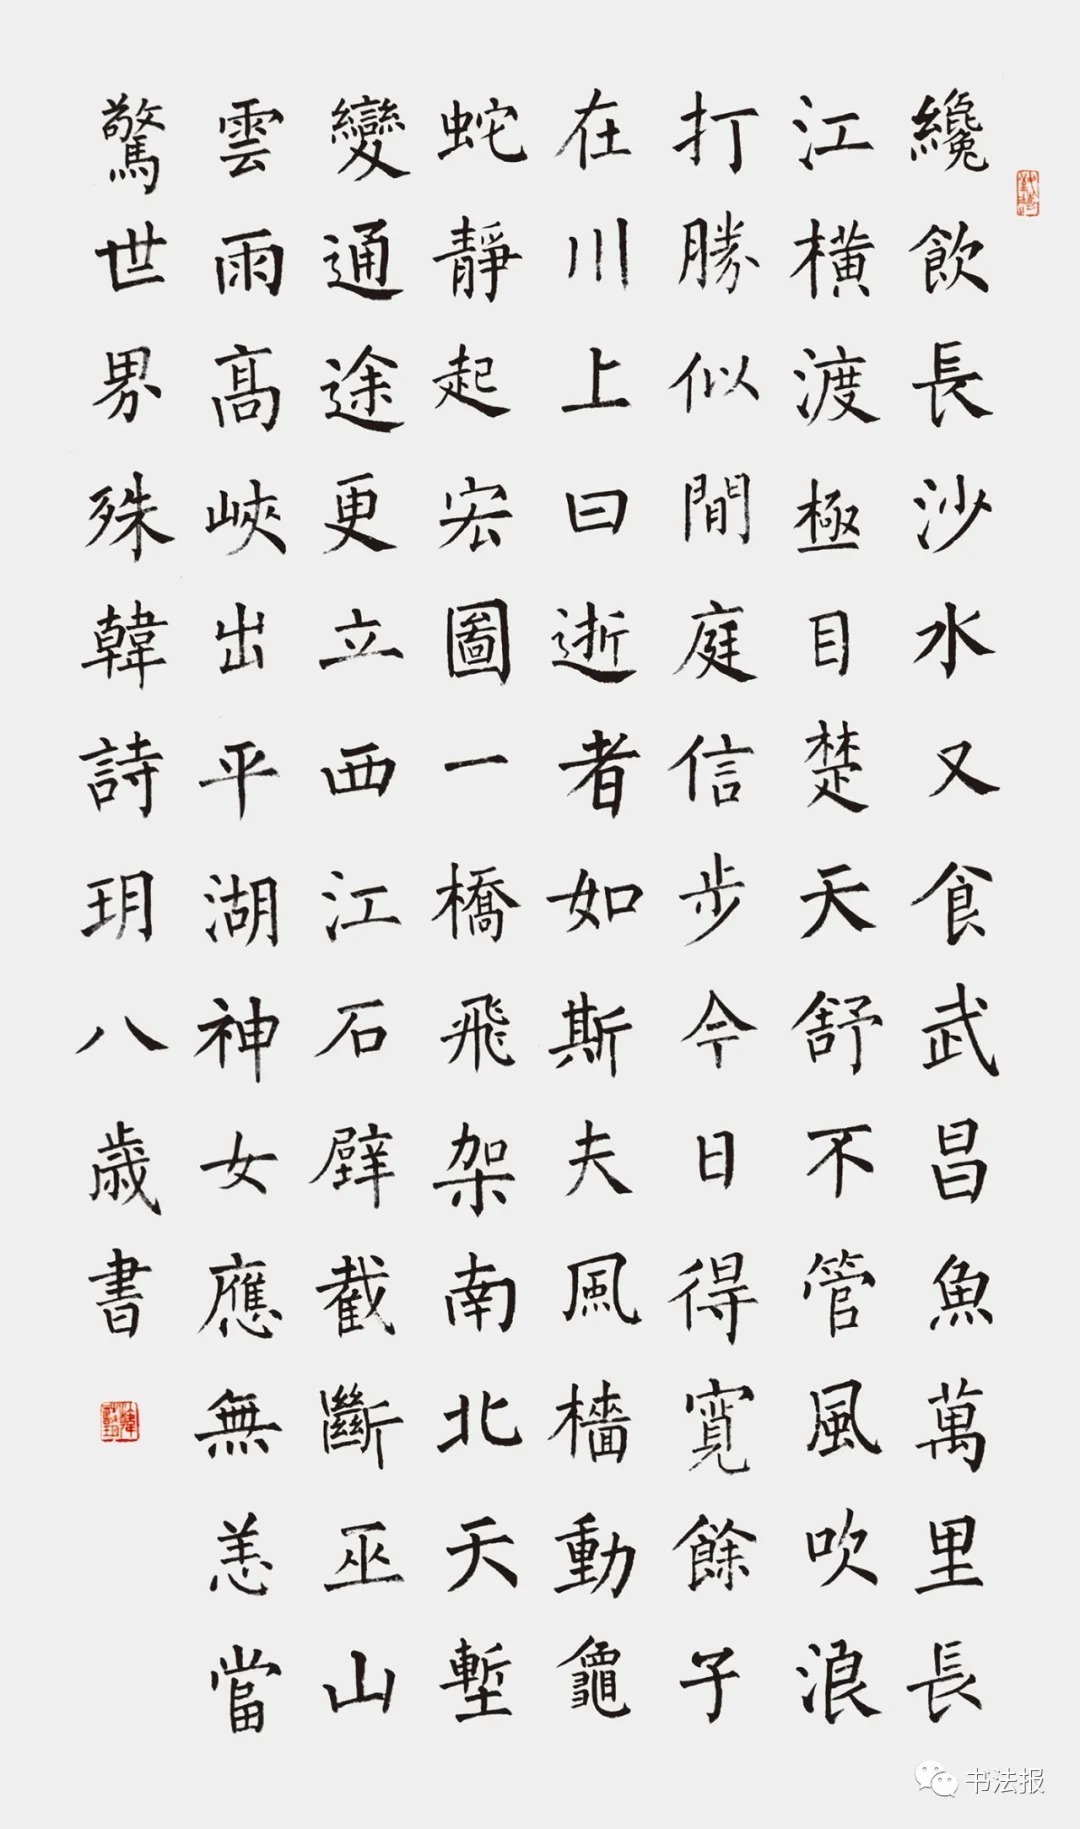 纔飲長沙水又食武昌魚萬里長
江橫渡極目楚天舒不管風吹浪
打勝似閒庭信步今日得寬餘子
在川上曰逝者如斯夫風檣動龜
蛇靜起宏圖一橋飛架南北天塹
變通途更立西江石壁截斷巫山
雲雨髙峽出平湖神女應無恙當
驚世界殊韓詩玥八歲書
书法报